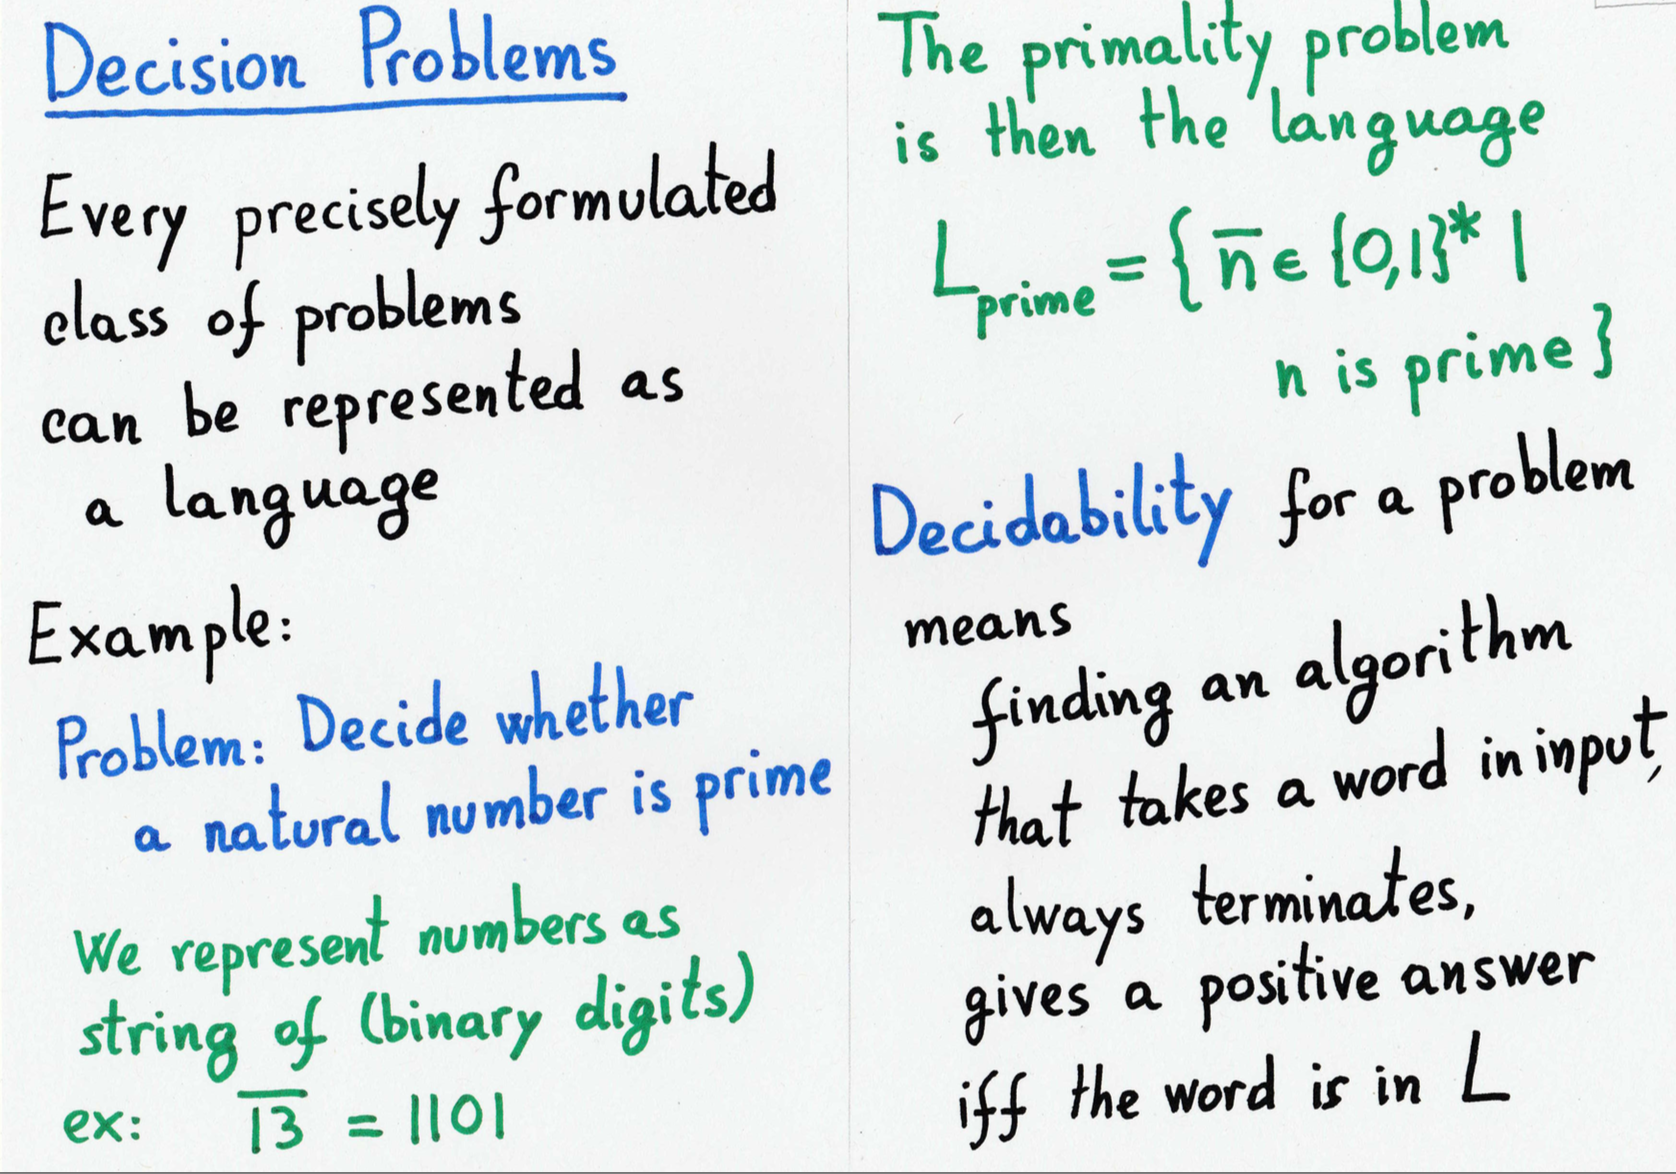 Decision Problems
Every precisely formulated
class of problems
can be represented as
a language
Example:
Problem: Decide whether
a natural number is prime
We represent numbers as
string of (binary digits)
ex: 1̅3̅ = 1101
The primality problem
is then the language
L_prime = { n̅ ∈ {0,1}* |
n is prime }
Decidability for a problem
means
finding an algorithm
that takes a word in input,
always terminates,
gives a positive answer
iff the word is in L